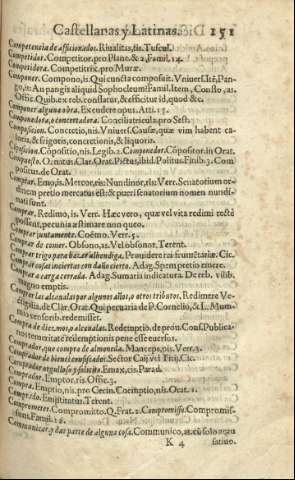 Castellanas y Latinas. 151
Competencia de aficionados. Riualitas, tis. Tuscul.
Competidor. Competitor. pro Planc. & 2. Famil. 14.
Competidora. Competitrix. pro Muræ.
Componer. Compono, is. Qui cuncta composuit. Vniuers.
go, is. An pangis aliquid Sophocleum? Famil. Item, Consto, as.
Offic. Quib. ex reb. conflatur, & efficitur id, quod &c.
Componer alguna obra. Excudere opus. Atti. 15.
Componedora, o concertadora. Conciliatricula. pro Sest.
Composicion. Concretio, nis. Vniuers. Causæ, quæ vim habent ca-
loris, & frigoris, concretionis, & liquoris.
Composicion. Cōpositio, nis. Legib. 2. Componedor. Cōpositor. in Orat.
Compuesto. Ornatus. Clar. Orat. Pictus, ibid. Politus. Finib. 3. Com
positus. de Orat.
Comprar. Emo, is. Mercor, ris. Nundinor, ris. Verr. Senatorium or-
dinem pretio mercatus est: & pueri senatorium nomen nundi-
nati sunt.
Comprar. Redimo, is. Verr. Hæc vero, quæ vel vita redimi rectè
possent, pecunia æstimare non queo.
Comprar juntamente. Coëmo. Verr. 5.
Comprar de comer. Obsono, as. Vel obsonor. Terent.
Comprar trigo para hazer alhondiga. Prouidere rei frumētariæ. Cic.
Comprar cosas inciertas con daño cierto. Adag. Spem pretio emere.
Comprar a carga cerrada. Adag. Sumaris indicatura. De reb. vilib.
magno emptis.
las alcaualas por algunos años, o otros tributos. Redimere Ve-
ctigalia. de Clar. Orat. Qui pecuaria de P. Cornelio, & L. Mum-
mio censorib. redemisset.
Compra de diezmos, o alcaualas. Redemptio. de prou. Cons. Publica-
norum temeritate redemptionis pene esse euersos.
Comprador, que compra de almoneda. Manceps, pis. Verr. 3.
Comprador de bienes confiscados. Sector Caij vel Titij. Cic.
Comprador angulloso y solicito. Emax, cis. Parad.
Comprador. Emptor, ris. Offic. 3.
Compra. Emptio, nis. pro Cecin. Coëmptio, nis. Orat. 1.
Comprado. Emptitatus. Terent.
Comprometer. Compromitto. Q. Frat. 2. Compromisso. Compromis-
sum. Famil. 12.
Comunicar, y dar parte de alguna cosa. Communico, as.
K 4 satiuo.